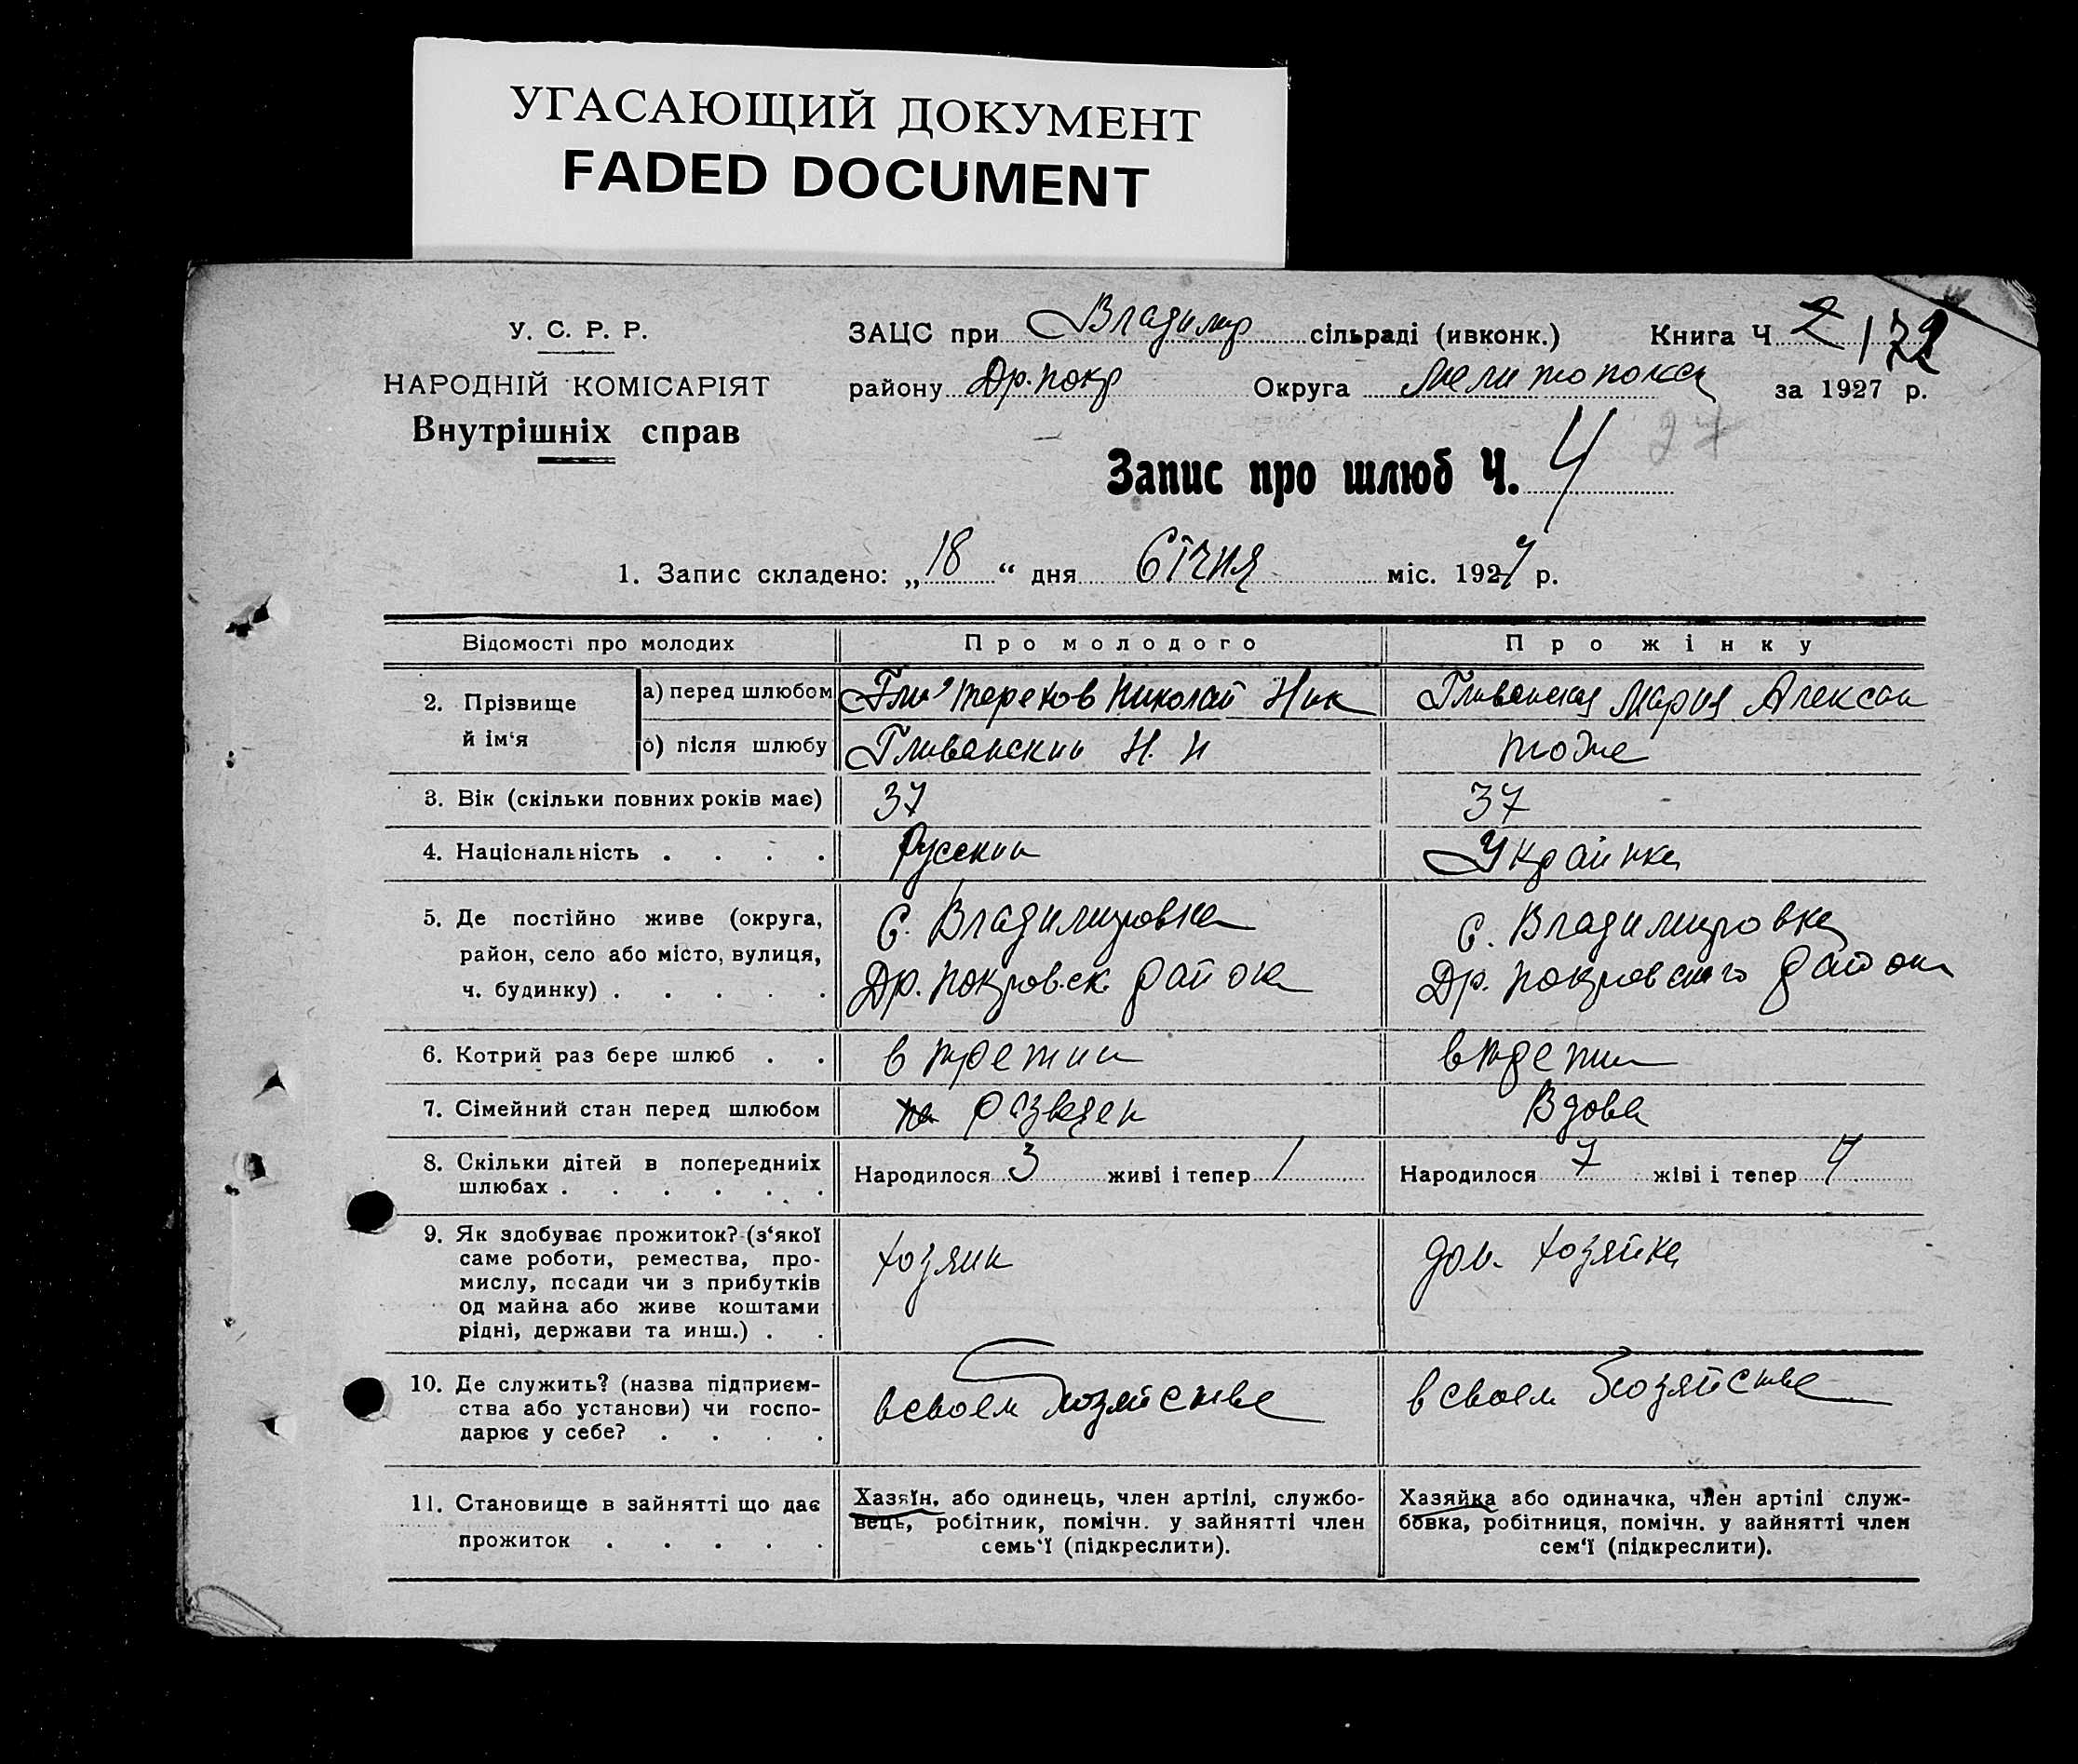 УГАСАЮЩИЙ ДОКУМЕНТ
FADED DOCUMENT
У. С. Р. Р.
НАРОДНІЙ КОМІСАРІЯТ
Внутрішніх справ
ЗАЦС при Владимир сільраді (ивконк.) Книга Ч 2
району Др. покр Округа за 1927 р.
27
Запис про шлюб Ч. 4
1. Запис складено: „18“ дня Січня міс. 1927 р.
Відомості про молодих
Про молодого
Про жінку
2. Прізвище й ім‘я
а) перед шлюбом
Терехов Николай Ник
Гливанская Мария Алексан
б) після шлюбу
Гливанский Н. Н
тоже
3. Вік (скільки повних років має)
37
37
4. Національність . . . .
Русский
Украинка
5. Де постійно живе (округа,
район, село або місто, вулиця,
ч. будинку) . . . . .
С. Владимировка
Др. покровск. район
С. Владимировка
Др. покровского район
6. Котрий раз бере шлюб . .
в третий
в трети
7. Сімейний стан перед шлюбом
розведен
Вдова
8. Скільки дітей в попередниіх
шлюбах . . . . . .
Народилося 3 живі і тепер 1
Народилося 7 жіві і тепер 4
9. Як здобуває прожиток? (з‘якої
саме роботи, ремества, про-
мислу, посади чи з прибутків
од майна або живе коштами
рідні, держави та инш.) . .
хозяин
дом. хозяйка
10. Де служить? (назва підприєм-
ства або установи) чи госпо-
дарює у себе? . . . .
в своем хозяйстве
в своем хозяйстве
11. Становище в зайнятті що дає
прожиток . . . . .
Хазяїн, або одинець, член артілі, службо-
вець, робітник, помічн. у зайнятті член
семь‘ї (підкреслити).
Хазяйка або одиначка, член артілі служ-
бовка, робітниця, помічн. у зайнятті член
сем‘ї (підкреслити).